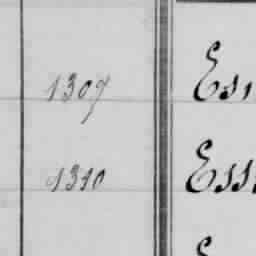 1309 Esi
1310 Ess